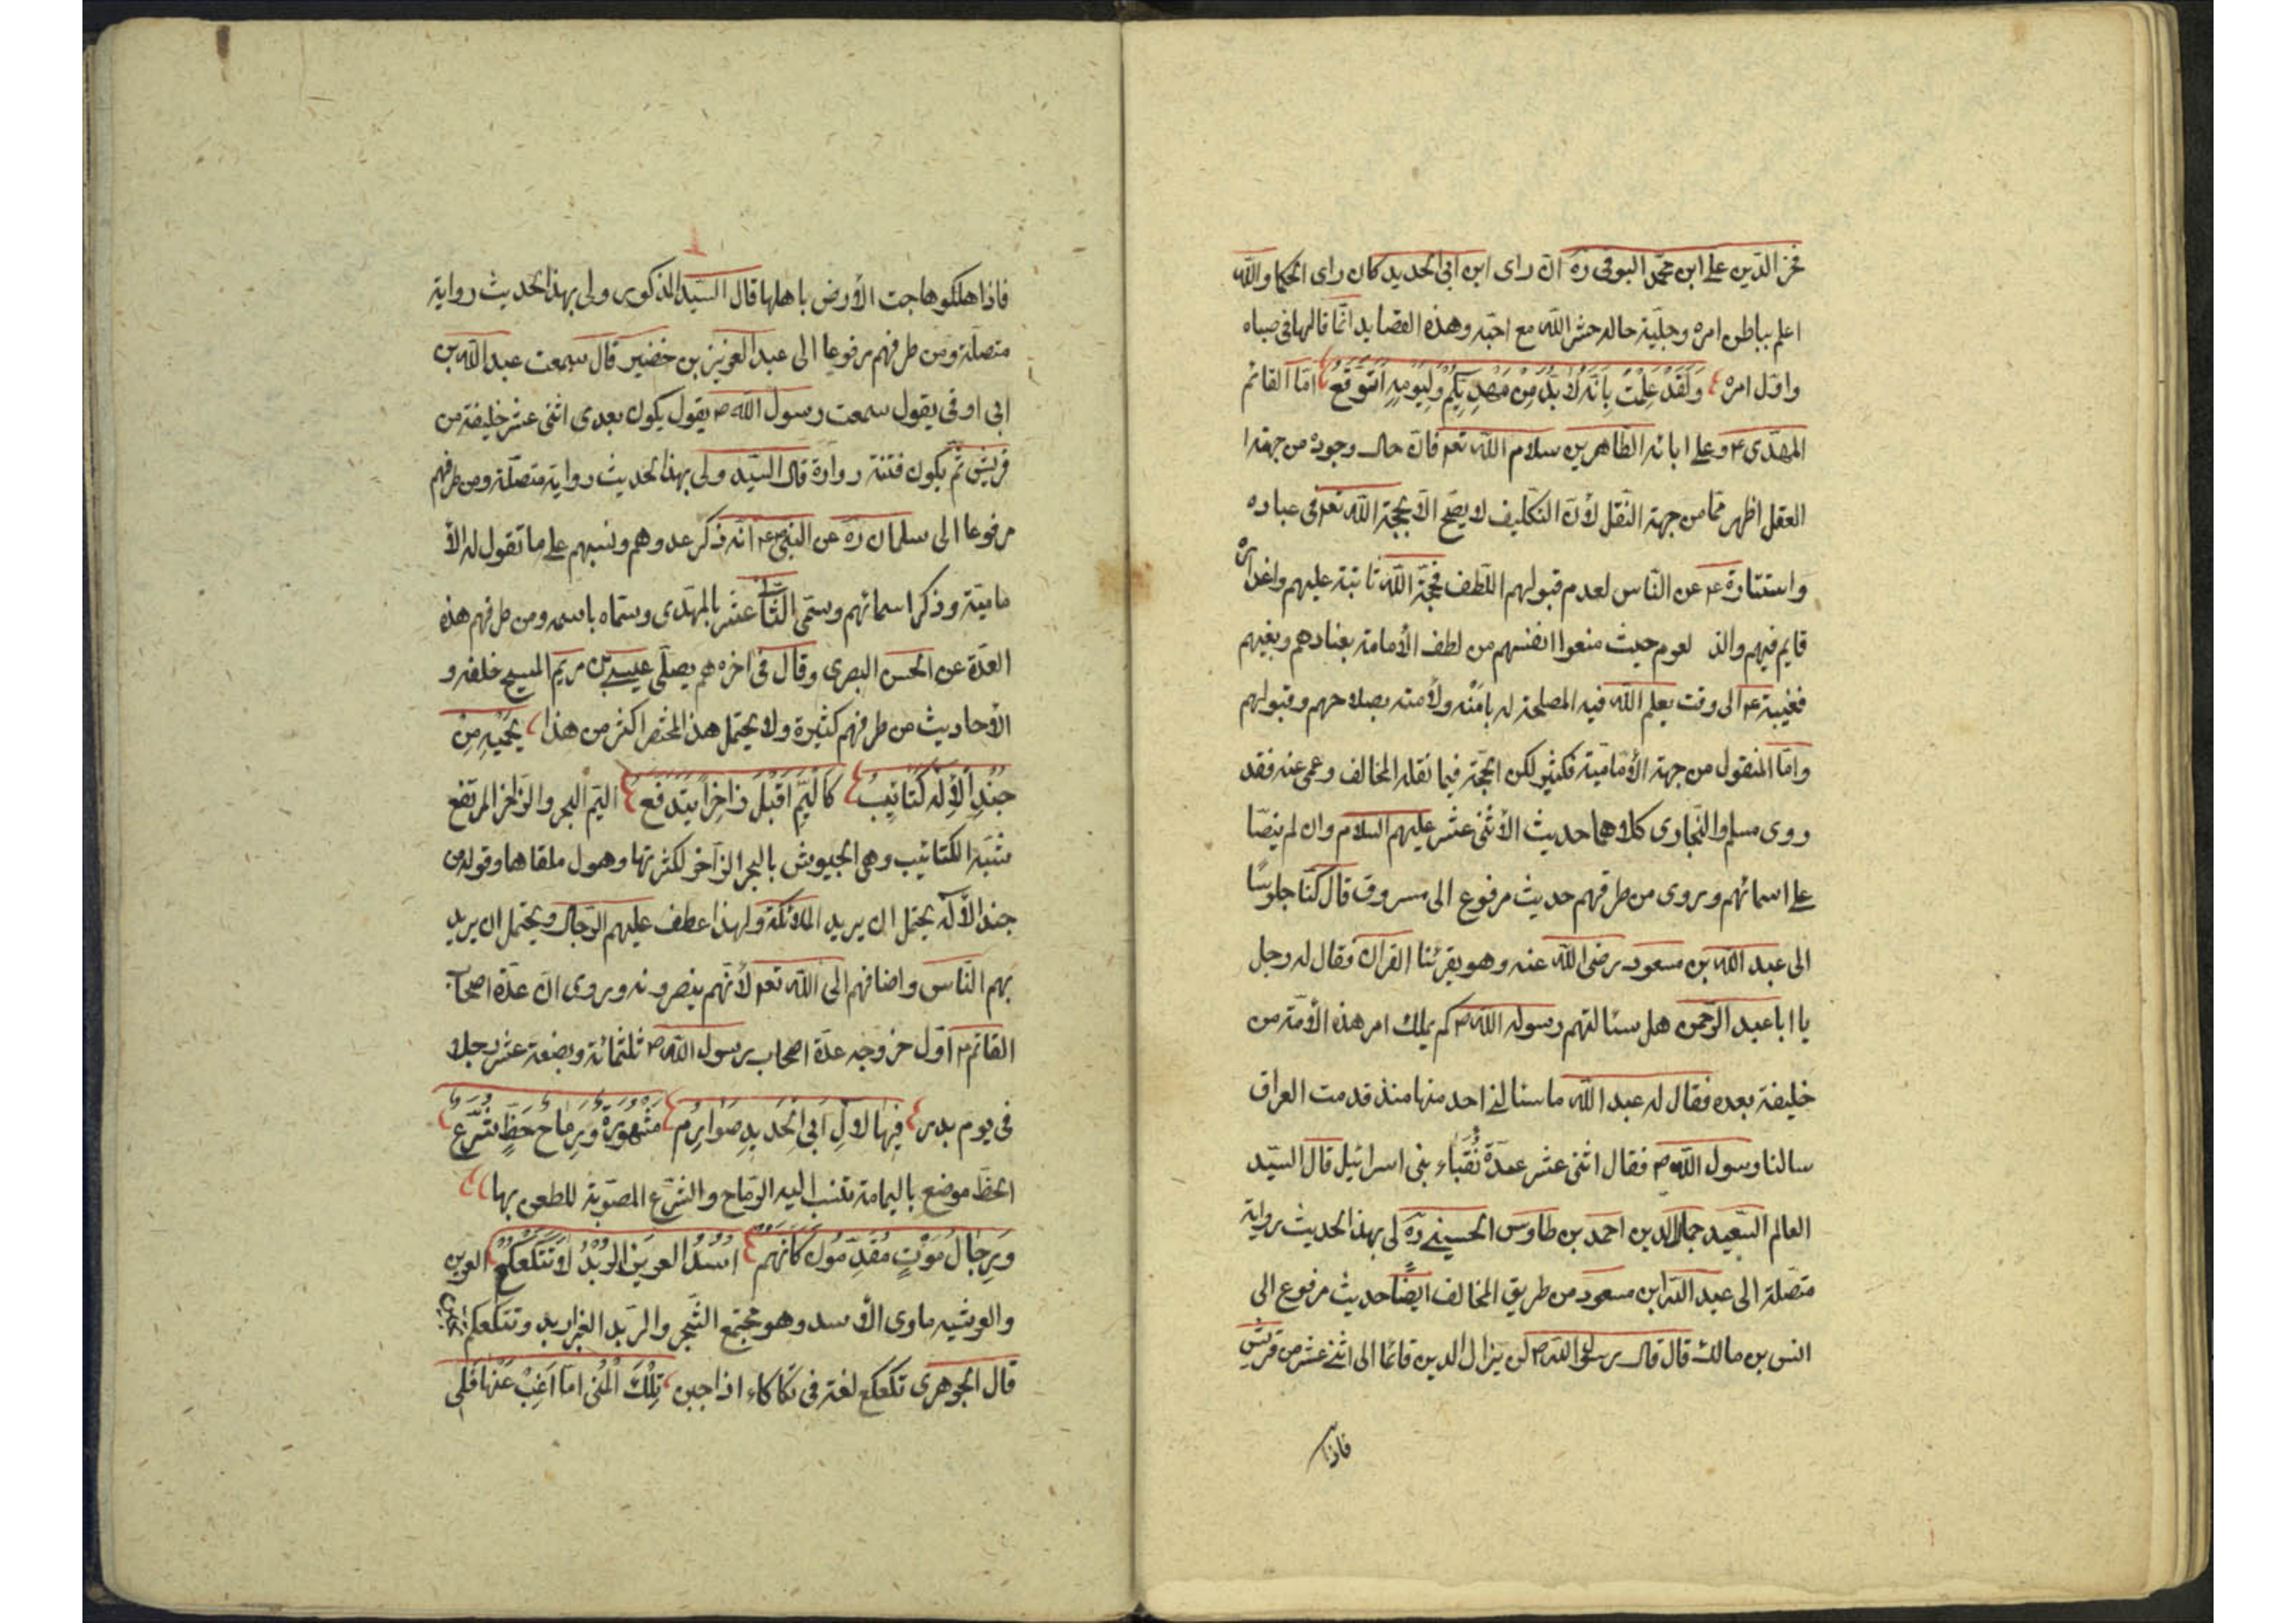 فخر الدين على ابن محمد البوقى ره ان راى ابن ابى الحديد كان راى الحكما والله
اعلم بباطن امره وجليّة حاله حشر الله مع احبّه وهذه القصايد انّما قالها فى صباه
واوّل امره وَلَقَدْ عَلِمْتُ بِاَنَّهُ لَا بُدَّ مِنْ مَهْدِيِّكُمْ وَلِيَوْمِهِ اَتَوَقَّعُ امّا القائم
المهدى ع وعلى ابائه الطّاهرين سلام الله تعم فان حال وجوده من جهة ا
العقل اظهر ممّا من جهة النّقل لأنّ التكليف لا يصحّ الّا بحجّة الله تعم فى عباده
واستتاره ع عن النّاس لعدم قبولهم اللّطف فحجّة الله ثابتة عليهم واعذاره
قايم فيهم والذ لعوم حيث منعوا انفسهم من لطف الأمامة بعنادهم وبغيهم
فغيبة ع الى وقت يعلم الله فيه المصلحة له بامنه ولأمته بصلاحهم وقبولهم
وامّا المنقول من جهة الأماميّة فكثير لكن الحجّة فيما نقله المخالف وعمى عنه فقد
روى مسلم والبخارى كلاهما حديث الأثنى عشر عليهم السلام وان لم ينصّا
على اسمائهم ويروى من طرقهم حديث مرفوع الى مسروق قال كنّا جلوسًا
الى عبد الله بن مسعود رضى الله عنه وهو يقرئنا القران فقال له رجل
يا ابا عبد الرّحمن هل سئالتهم رسول الله ص كم يملك امر هذه الأمّة من
خليفة بعده فقال له عبد الله ما سئالنى احد منها منذ قدمت العراق
سالنا رسول الله ص فقال اثنى عشر عدّة نُقَباء بنى اسرائيل قال السّيد
العالم السّعيد جمال الدين احمد بن طاوس الحسينى ره لى بهذا الحديث رواية
متصلة الى عبد الله ابن مسعود من طريق المخالف ايضًا حديث مرفوع الى
انس بن مالك قال قال رسول الله ص لن يزال الدين قائما الى اثنى عشر من قريش
فاذا
فاذا هلكوا هاجت الأرض باهلها قال السّيد المذكور ولى بهذا الحديث رواية
متصلة ومن طرفهم مرفوعا الى عبد العزيز بن خضير قال سمعت عبد الله بن
ابى اوفى يقول سمعت رسول الله ص يقول يكون بعدى اثنى عشر خليفة من
قريش ثمّ يكون فتنة دوّارة قال السّيد ولى بهذا الحديث رواية متصلة ومن طرفهم
مرفوعا الى سلمان ره عن النبى ص ع انّه ذكر عددهم ونسبهم على ما تقول له الأ
ماميّة وذكر اسمائهم وسمّى الثّانى عشر بالمهدى وسمّاه باسمه ومن طرفهم هذه
العدّة عن الحسن البصرى وقال فى اخره هم يصلّى عيسى بن مريم المسيح خلفه و
الأحاديث من طرفهم كثيرة ولا يحتمل هذا المختصر اكثر من هذا يَحْمِيهِ مِنْ
جُنْدِ الْأِلٰهِ كَتَائِبٌ كَالْيَمِّ اَقْبَلَ زَاخِرًا يَتَدَفَّعُ اليمّ البحر والزاخر المرتفع
شبّه الكتائيب وهى الجيوش بالبحر الزّاخر لكثرتها وهول ملقاها وقوله من
جند الأله يحتمل ان يريد الملائكة ولهذا عطف عليهم الرّجال ويحتمل ان يريد
بهم النّاس واضافهم الى الله تعم لأنّهم ينصرونه وروى انّ عدّة اصحاب
القائم ع اوّل خروجه عدّة اصحاب رسول الله ص ثلثمائة وبضعة عشر رجلا
فى يوم بدر فِيهَا لِآلِ اَبِى الْحَدِيدِ صَوَارِمٌ مَشْهُورَةٌ وَرِمَاحُ خَطٍّ شُرَّعُ
الخطّ موضع باليمامة تنسب اليه الرّماح والشّرّع المصوّبة للطعن بها
وَرِجَالُ مَوْتٍ مُقْدِمُونَ كَاَنَّهُمْ اُسُدُ الْعَرِينِ الرُّبْدُ لَا تَتَكَعْكَعُ العرين
والعريسه ماوى الأسد وهو مجتمع الشّجر والرّبد الغبر اربد وتتكعكع
قال الجوهرى تكعكع لغة فى تكاكاء اذا جبن تِلْكَ الْمُنٰى اِمَّا اَغِبْ عَنْهَا فَلِى